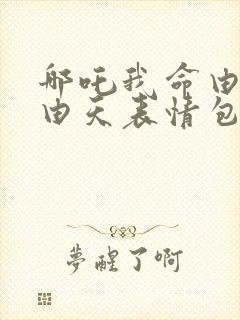 哪吒我命由
由天表情包
夢醒了啊